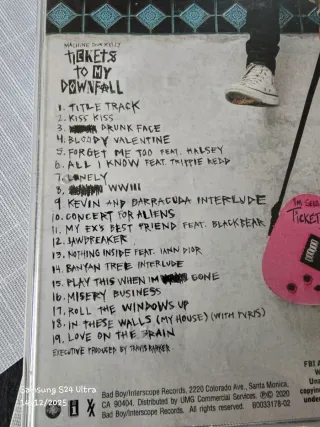 MACHINE GUN KELLY
TICKETS
TO MY
DOWNFALL
1. TITLE TRACK
2. KISS KISS
3. DRUNK FACE
4. BLOODY VALENTINE
5. FORGET ME TOO FEAT. HALSEY
6. ALL I KNOW FEAT. TRIPPIE REDD
7. LONELY
8. WWIII
9. KEVIN AND BARRACUDA INTERLUDE
10. CONCERT FOR ALIENS
11. MY EX'S BEST FRIEND FEAT. BLACKBEAR
12. JAWBREAKER
13. NOTHING INSIDE FEAT. IANN DIOR
14. BANYAN TREE INTERLUDE
15. PLAY THIS WHEN I'M GONE
16. MISERY BUSINESS
17. ROLL THE WINDOWS UP
18. IN THESE WALLS (MY HOUSE) (WITH PVRIS)
19. LOVE ON THE BRAIN
EXECUTIVE PRODUCED BY TRAVIS BARKER
TICKET
FBI A
Bad Boy/Interscope Records, 2220 Colorado Ave., Santa Monica,
CA 90404. Distributed by UMG Commercial Services. ℗© 2020
Bad Boy/Interscope Records. All rights reserved. B0033178-02
Samsung S24 Ultra
14/12/2025